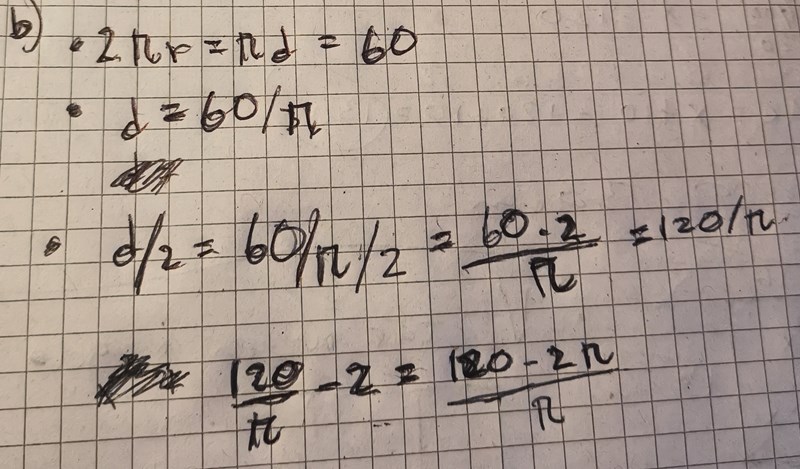 b) • 2πr = πd = 60
• d = 60/π
• d/2 = 60/π/2 = \frac{60 · 2}{π} = 120/π
\frac{120}{π} - 2 = \frac{120 - 2π}{π}